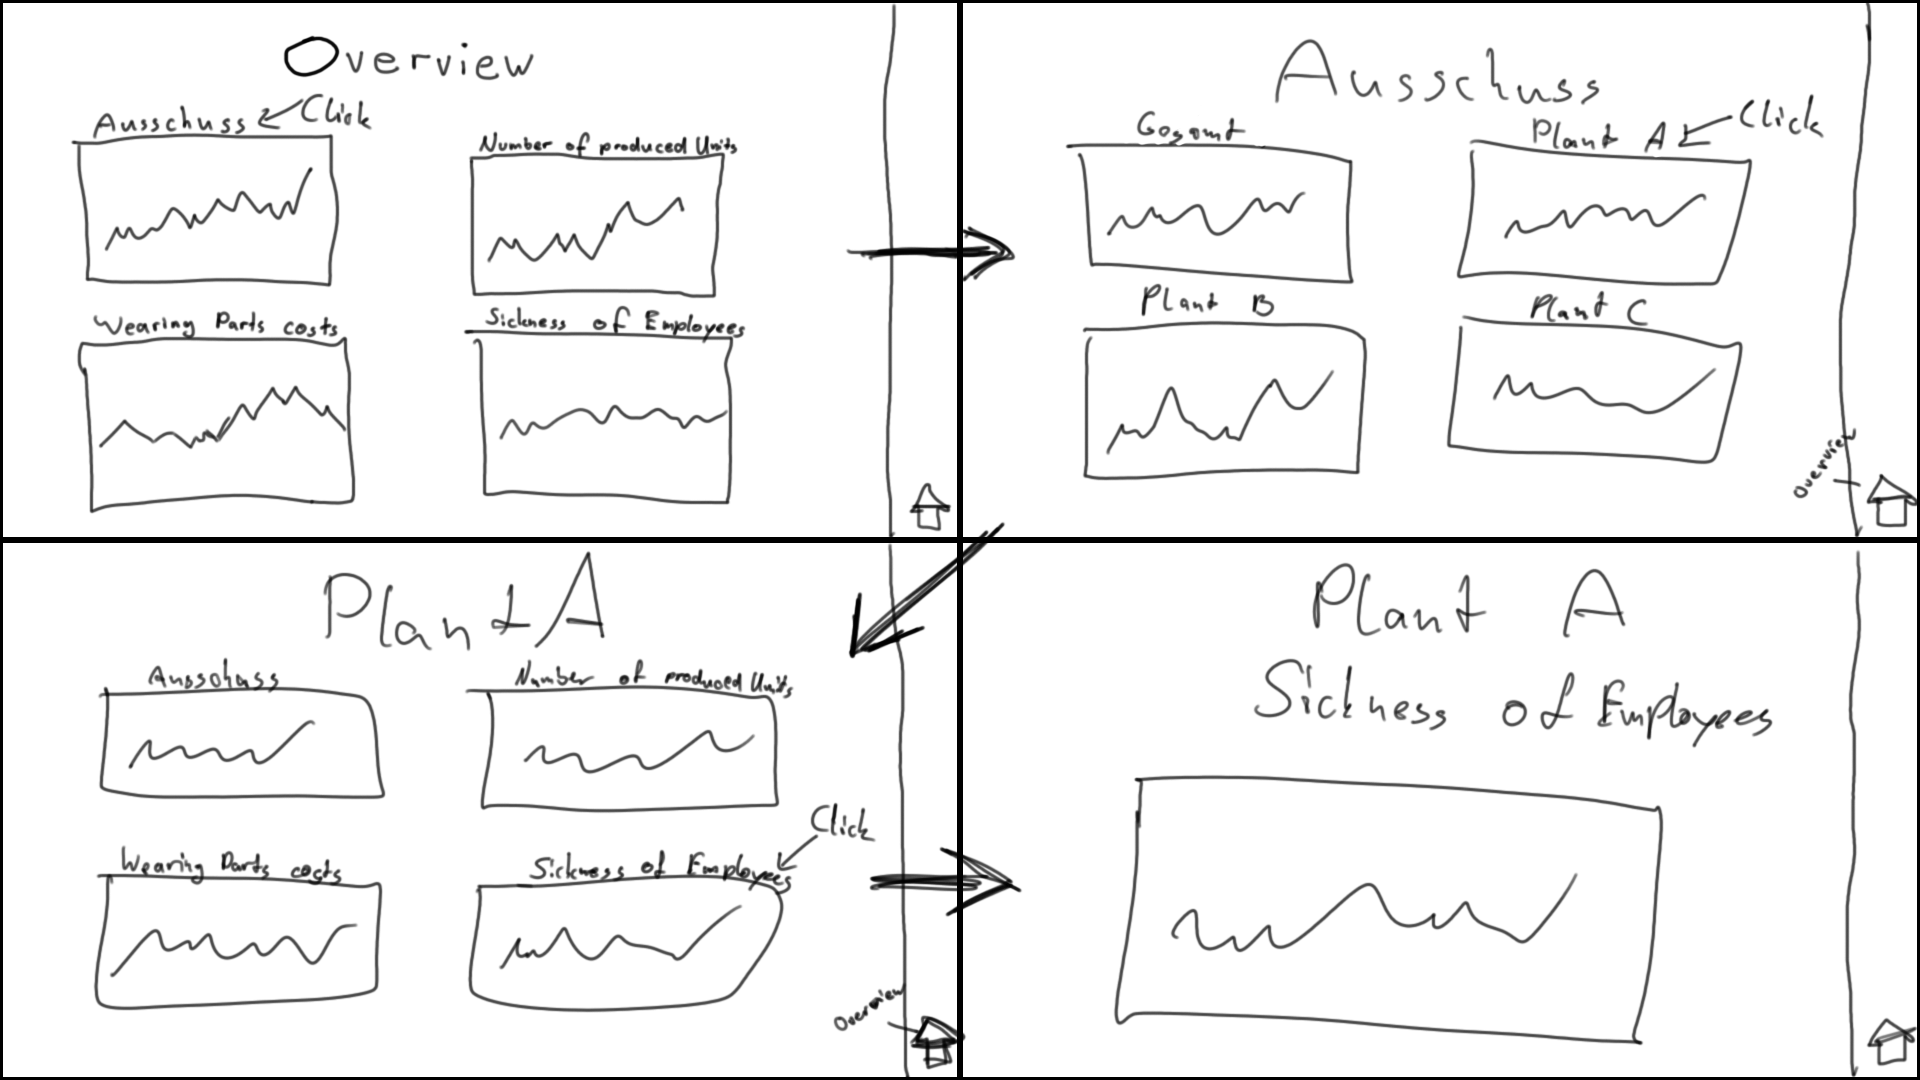 Overview
Ausschuss
Click
Number of produced Units
Wearing Parts costs
Sickness of Employees
Ausschuss
Gesamt
Plant A
Click
Plant B
Plant C
Overview
Plant A
Ausschuss
Number of produced Units
Click
Wearing Parts costs
Sickness of Employees
Overview
Plant A
Sickness of Employees